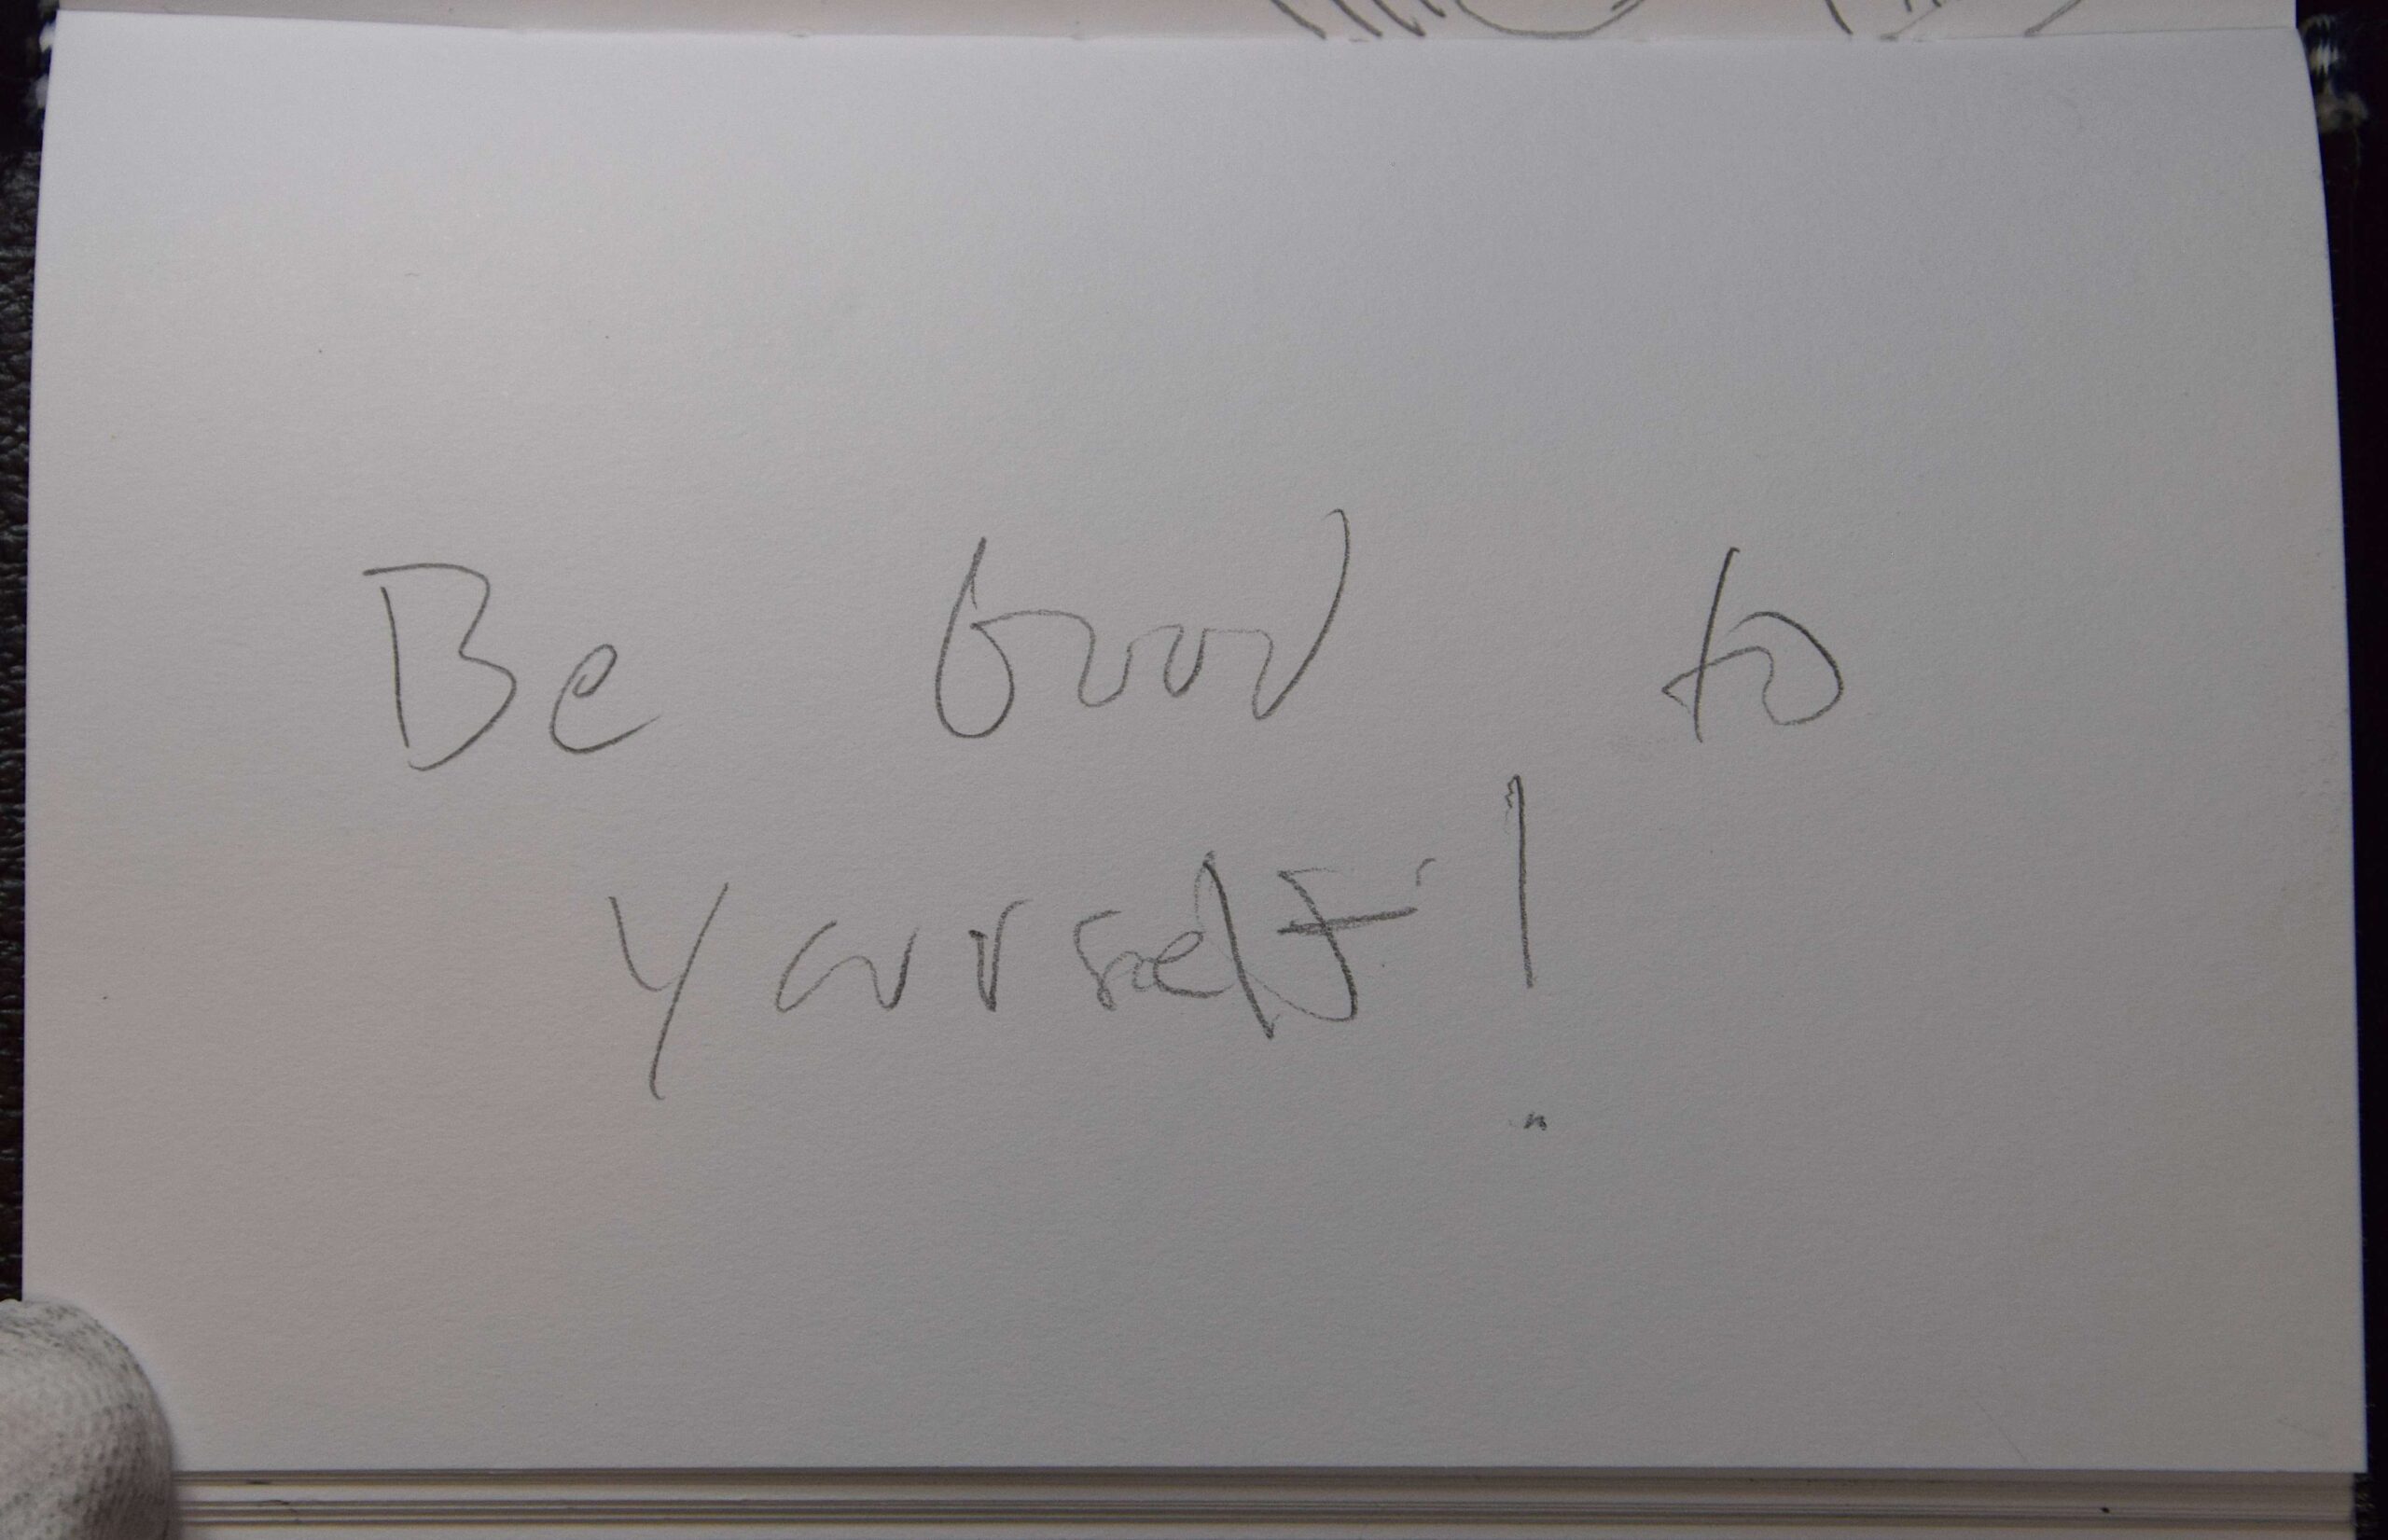 Be Good to
yourself!